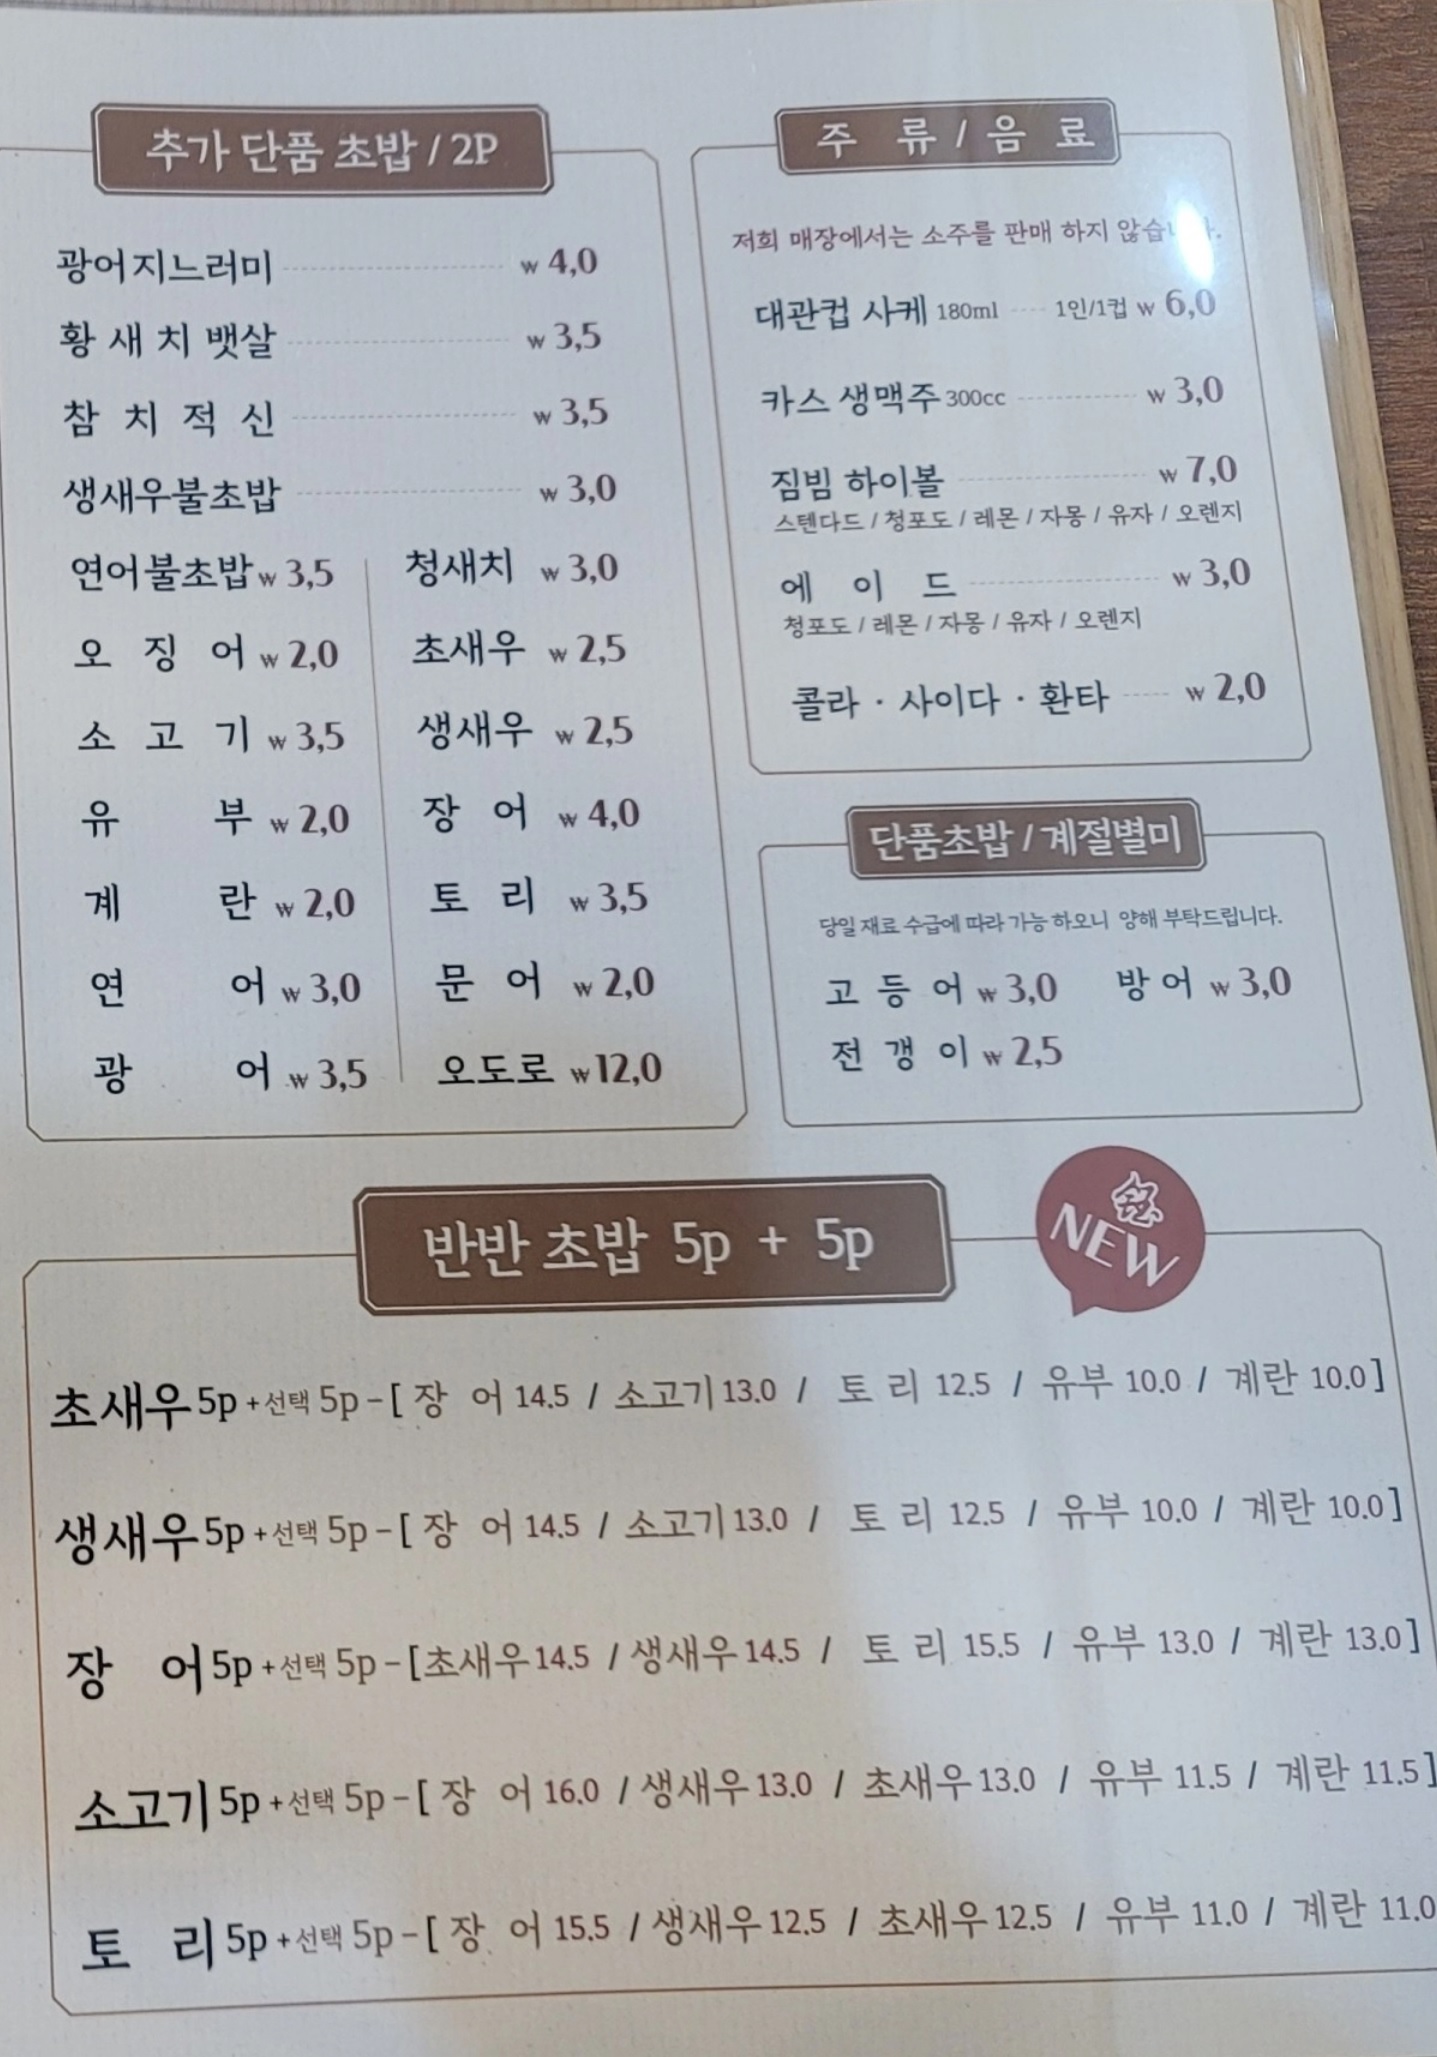 추가 단품 초밥 / 2P
광어지느러미 ₩ 4,0
황새치 뱃살 ₩ 3,5
참치적신 ₩ 3,5
생새우불초밥 ₩ 3,0
연어불초밥 ₩ 3,5
오징어 ₩ 2,0
소고기 ₩ 3,5
유부 ₩ 2,0
계란 ₩ 2,0
연어 ₩ 3,0
광어 ₩ 3,5
청새치 ₩ 3,0
초새우 ₩ 2,5
생새우 ₩ 2,5
장어 ₩ 4,0
토리 ₩ 3,5
문어 ₩ 2,0
오도로 ₩ 12,0
주류 / 음료
저희 매장에서는 소주를 판매 하지
대관컵 사케 180ml 1인/1컵 ₩ 6,0
카스 생맥주 300cc ₩ 3,0
짐빔 하이볼 ₩ 7,0
스텐다드 / 청포도 / 레몬 / 자몽 / 유자 / 오렌지
에이드 ₩ 3,0
청포도 / 레몬 / 자몽 / 유자 / 오렌지
콜라 · 사이다 · 환타 ₩ 2,0
단품초밥 / 계절별미
당일 재료 수급에 따라 가능 하오니 양해 부탁드립니다.
고등어 ₩ 3,0 방어 ₩ 3,0
전갱이 ₩ 2,5
반반 초밥 5p + 5p
NEW
초새우 5p + 선택 5p - [ 장어 14.5 / 소고기 13.0 / 토리 12.5 / 유부 10.0 / 계란 10.0 ]
생새우 5p + 선택 5p - [ 장어 14.5 / 소고기 13.0 / 토리 12.5 / 유부 10.0 / 계란 10.0 ]
장어 5p + 선택 5p - [ 초새우 14.5 / 생새우 14.5 / 토리 15.5 / 유부 13.0 / 계란 13.0 ]
소고기 5p + 선택 5p - [ 장어 16.0 / 생새우 13.0 / 초새우 13.0 / 유부 11.5 / 계란 11.5 ]
토리 5p + 선택 5p - [ 장어 15.5 / 생새우 12.5 / 초새우 12.5 / 유부 11.0 / 계란 11.0